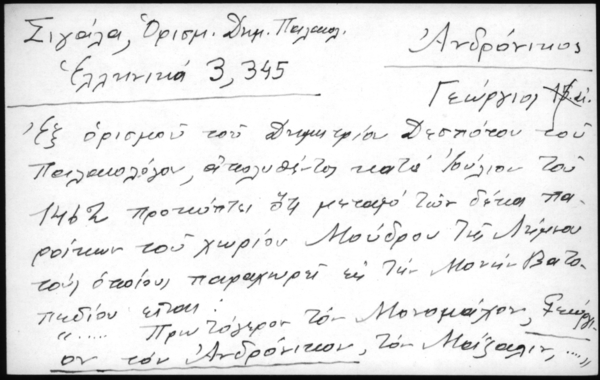 Σιγάλα, Ὁρισμ. Δημ. Παλαιολ.
Ἑλληνικά 3, 345
Ἀνδρόνικος
Γεώργιος
Ἐξ ὁρισμοῦ τοῦ Δημητρίου Δεσπότου τοῦ
Παλαιολόγου, ἀπολυθέντος κατά Ἰούλιον τοῦ
1462 προκύπτει ὅτι μεταξύ τῶν δέκα πα-
ροίκων τοῦ χωρίου Μούδρου τῆς Λήμνου
τούς ὁποίους παραχωρεῖ εἰς τήν Μονήν Βατο-
πεδίου εἶναι:
"..... Πρωτόγερον τόν Μονομάχον, Γεώργι-
ον τόν Ἀνδρόνικον, τόν Μοίζαλιν, ....."